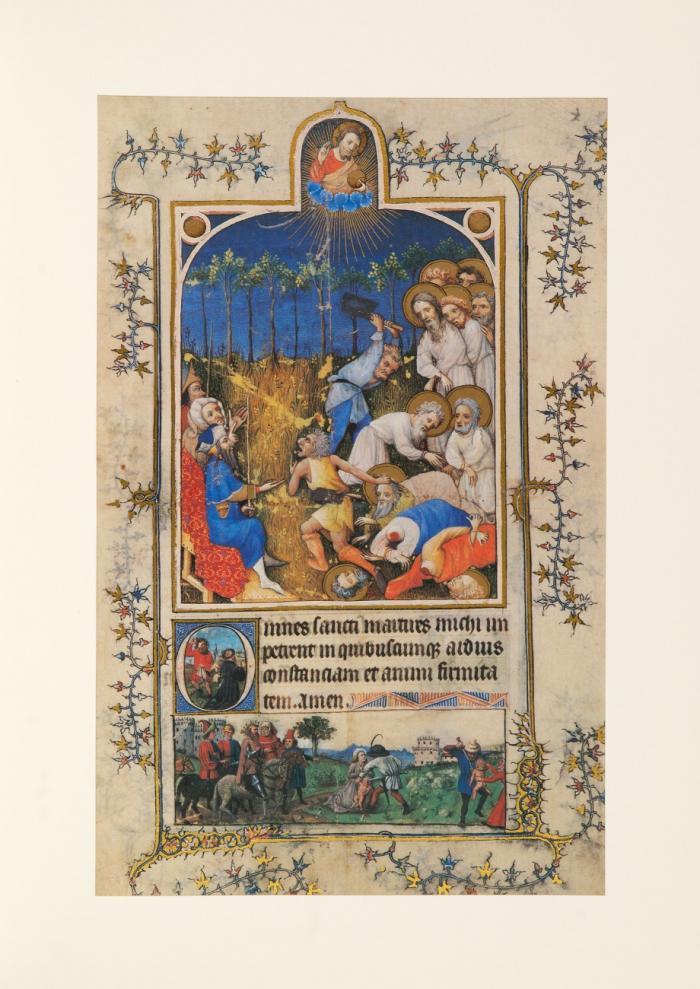 Omnes sancti martires michi im
petrent in quibuscumq; arduis
constanciam et animi firmita
tem. Amen.